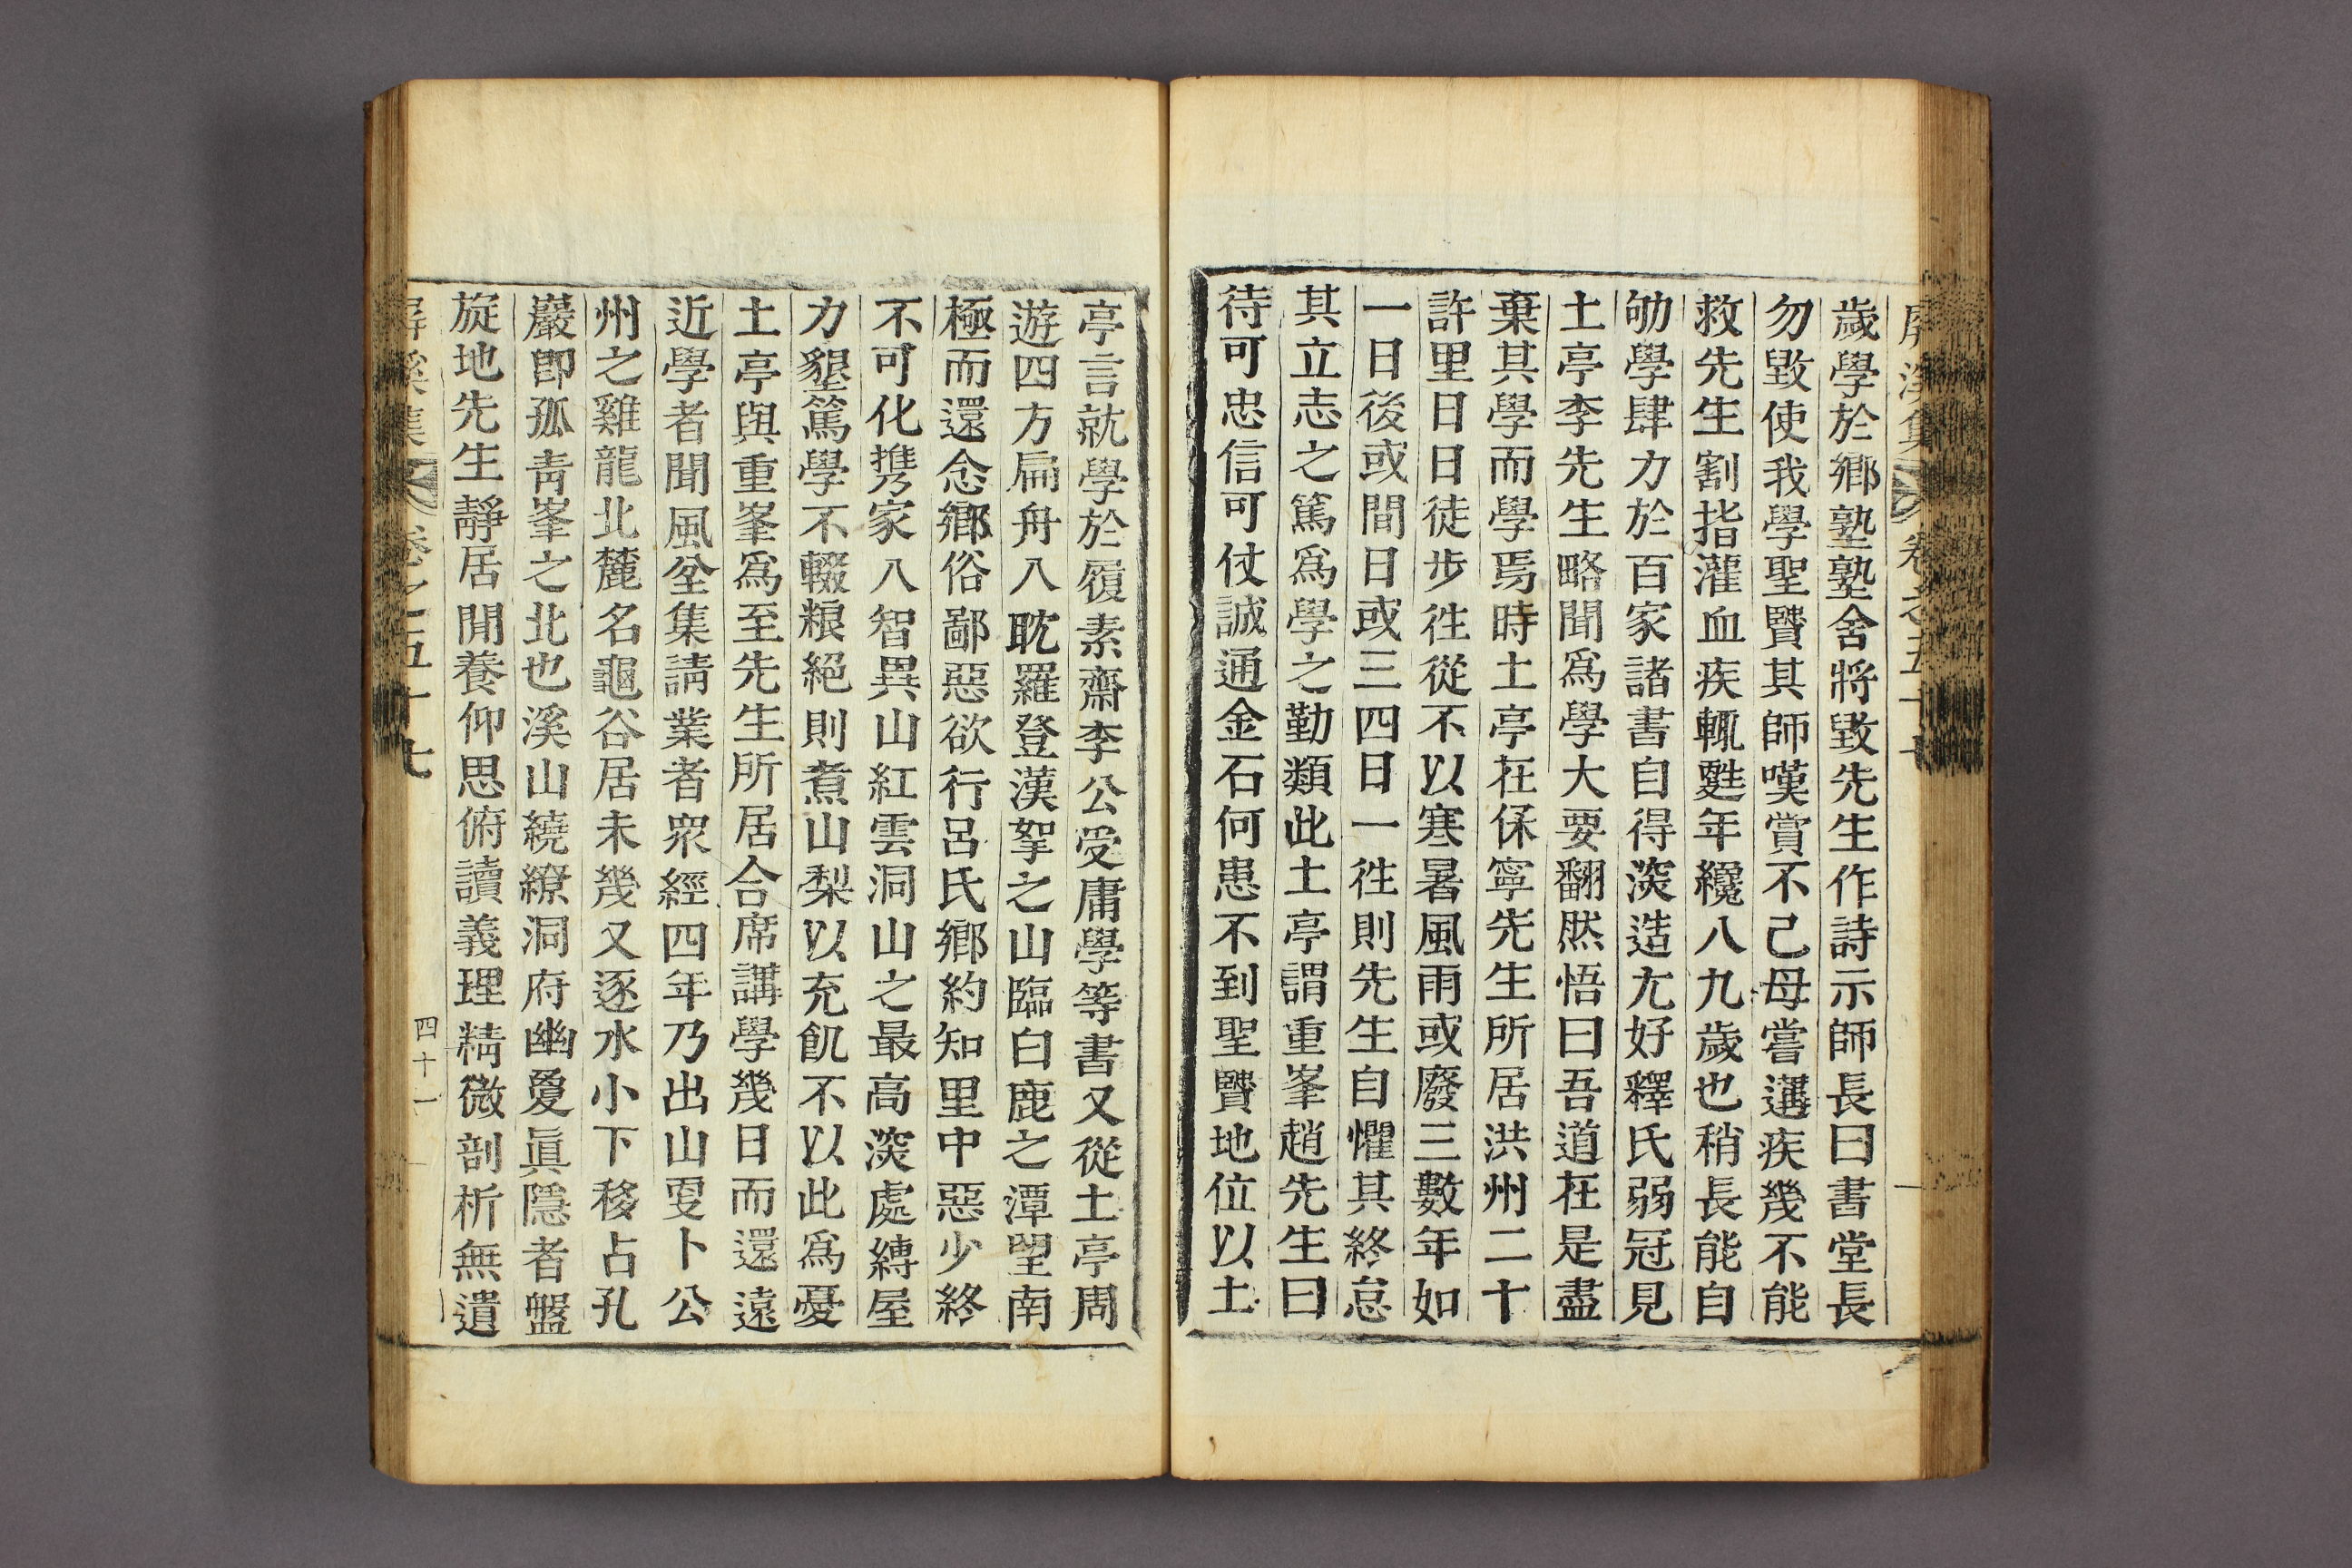 歲學於鄕塾塾舍將毀先生作詩示師長曰書堂長
勿毀使我學聖賢其師嘆賞不已母嘗遘疾幾不能
救先生割指灌血疾輒甦年纔八九歲也稍長能自
劬學肆力於百家諸書自得深造尤好釋氏弱冠見
土亭李先生略聞爲學大要翻然悟曰吾道在是盡
棄其學而學焉時土亭在保寧先生所居洪州二十
許里日日徒步徃從不以寒暑風雨或廢三數年如
一日後或間日或三四日一徃則先生自懼其終怠
其立志之篤爲學之勤類此土亭謂重峯趙先生曰
待可忠信可仗誠通金石何患不到聖賢地位以土
亭言就學於履素齋李公受庸學等書又從土亭周
遊四方扁舟入耽羅登漢挐之山臨白鹿之潭望南
極而還念鄕俗鄙惡欲行呂氏鄕約知里中惡少終
不可化携家入智異山紅雲洞山之最高深處縛屋
力墾篤學不輟粮絕則煮山梨以充飢不以此爲憂
土亭與重峯爲至先生所居合席講學幾日而還遠
近學者聞風坌集請業者衆經四年乃出山更卜公
州之雞龍北麓名龜谷居未幾又逐水小下移占孔
巖卽孤靑峯之北也溪山繞繚洞府幽敻眞隱者盤
旋地先生靜居閒養仰思俯讀義理精微剖析無遺
四十一